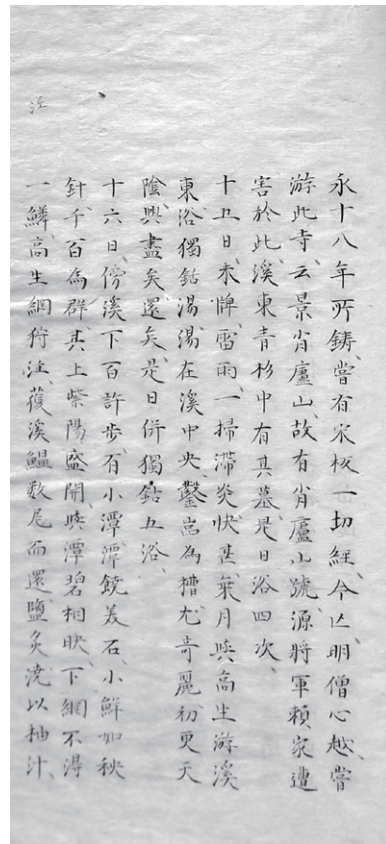 永十八年所鋳、嘗有宋板一切経、今亡、明僧心越、嘗
游此寺、云景肖廬山、故有肖廬山號、源将軍頼家遭
害於此、溪東青杉中有其墓、是日浴四次、
十五日未牌雷雨、一掃滞炎、快甚、乗月與高生游溪
東浴獨鈷湯、湯在溪中央、鑿嵓為槽、尤奇麗、初更天
陰、興盡矣還矣、是日併獨鈷五浴、
十六日、傍溪下百許歩、有小潭、潭饒美石、小鮮如秋
針、千百為群、其上紫陽盛開、與潭碧相映、下網不得
一鱗、高生網狩注、獲溪鰮数尾而還、鹽炙、澆以柚汁、
注